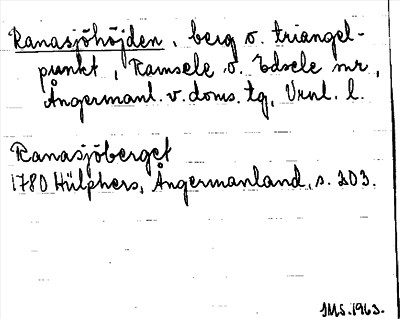 Ranasjöhöjden, berg o. triangel-
punkt, Ramsele o. Edsele snr,
Ångermanl. v. doms. tg, Vrnl. l.
Ranasjöberget
1780 Hülphers, Ångermanland, s. 203.
IMS. 1963.